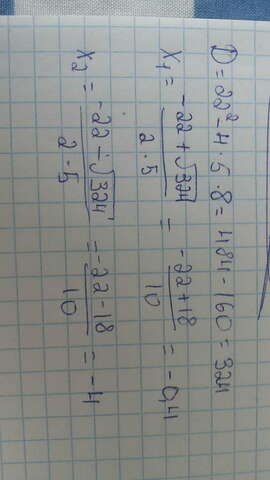 D = 22² - 4 · 5 · 8 = 484 - 160 = 324
x₁ = (-22 + √324) / (2 · 5) = (-22 + 18) / 10 = -0,4
x₂ = (-22 - √324) / (2 · 5) = (-22 - 18) / 10 = -4